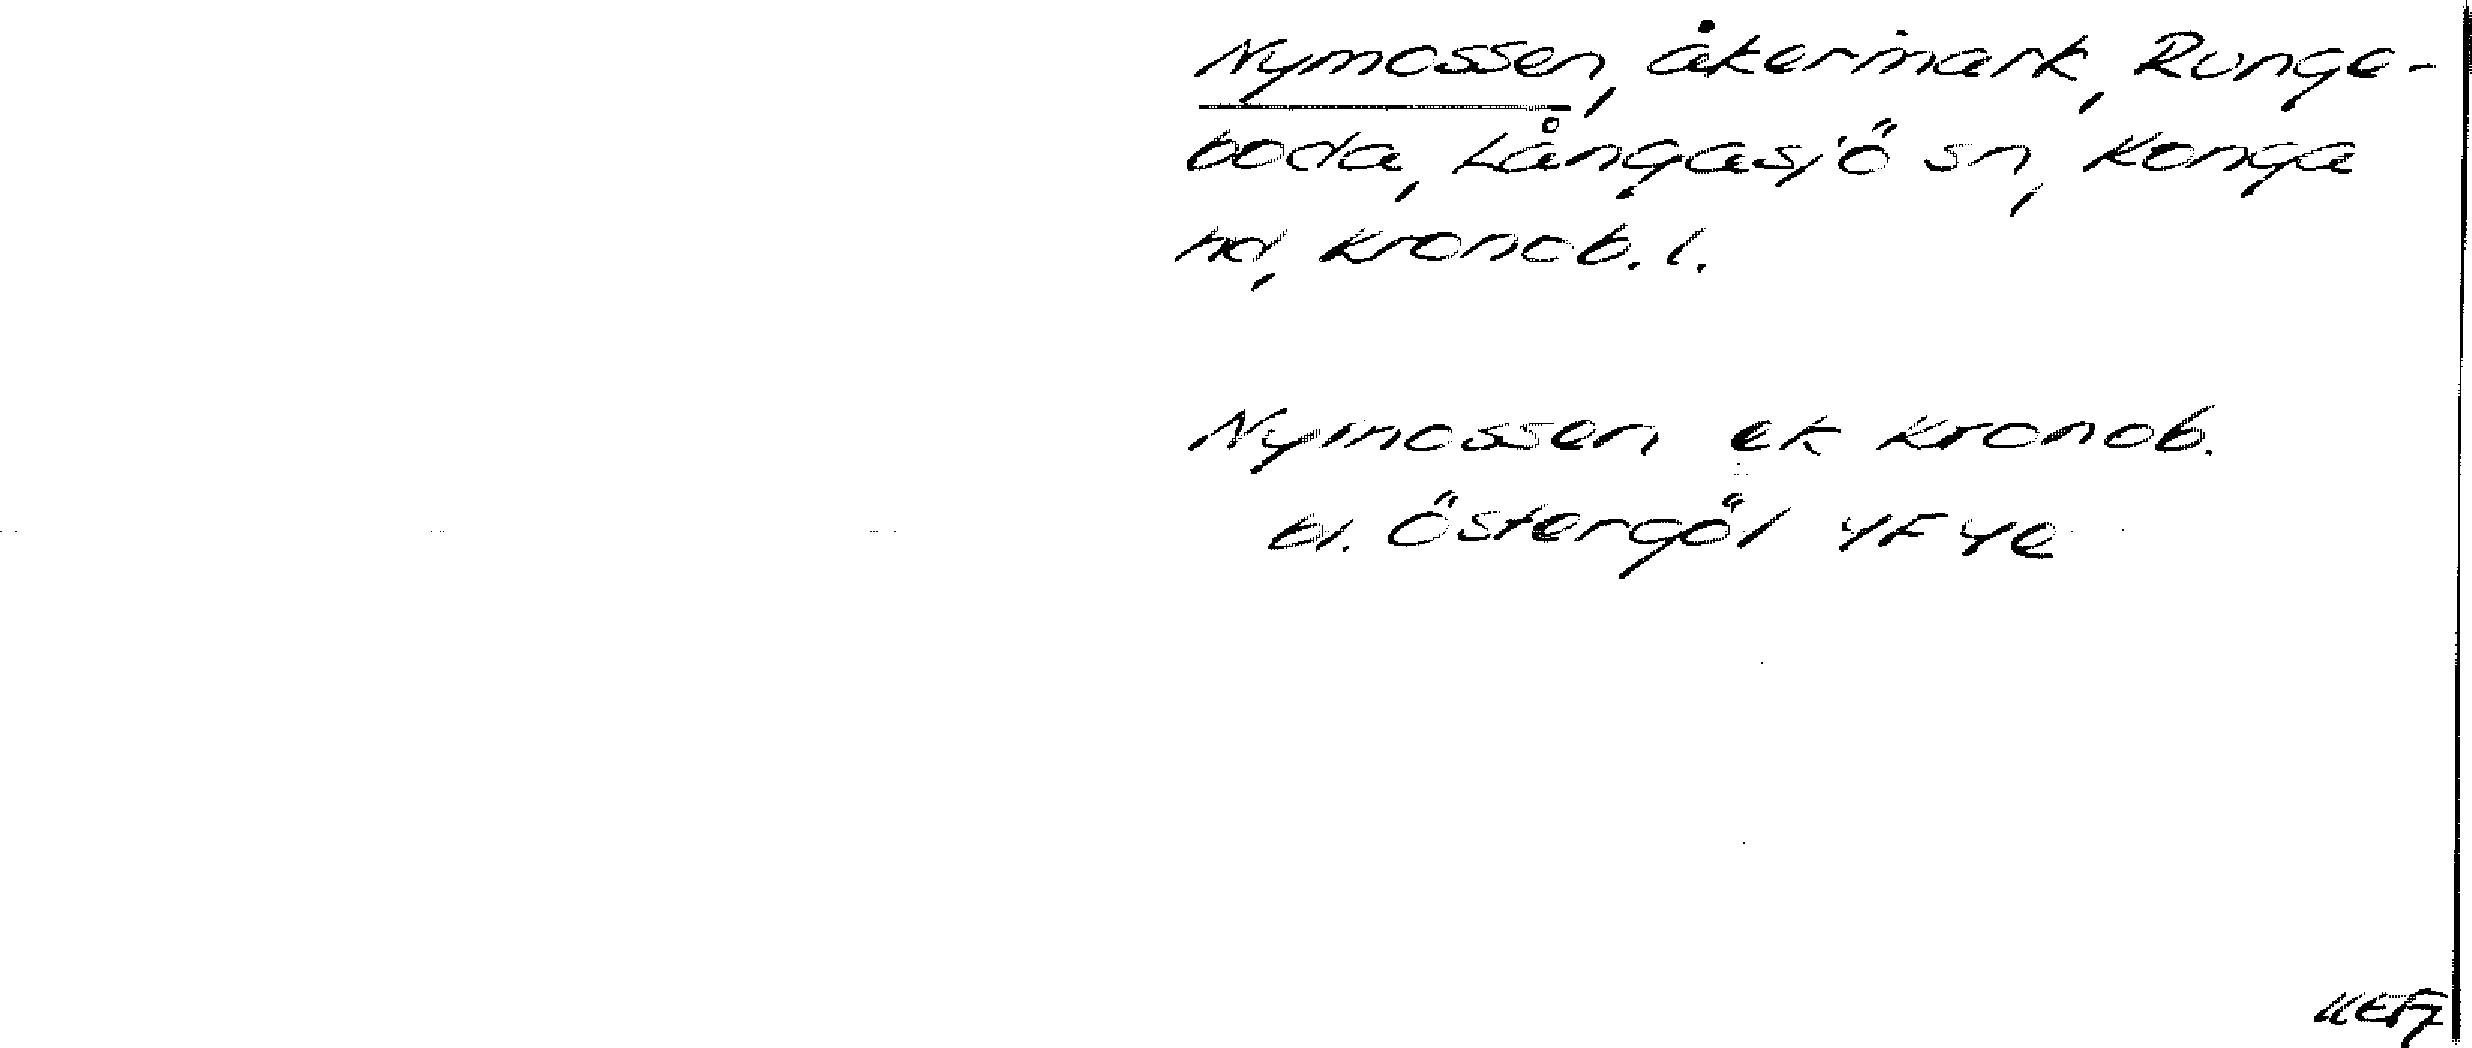 Nymossen, åkermark, Runga-
boda, Långasjö sn, Konga
hd, Kronob. l.
Nymossen ek Kronob.
bl. Östergöl 4F 4e